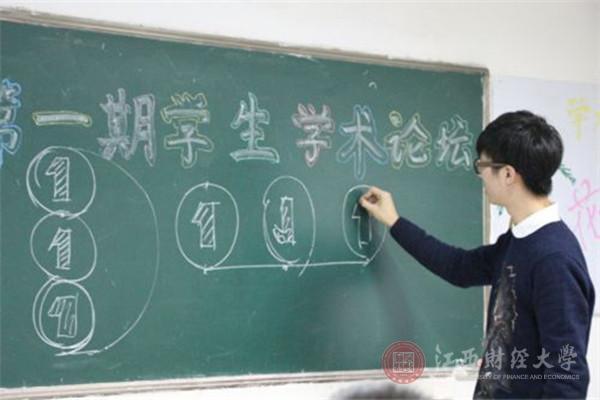 第一期学生学术论坛
1
1
2
1
1
学
花
江西财经大学
OF FINANCE AND ECONOMICS